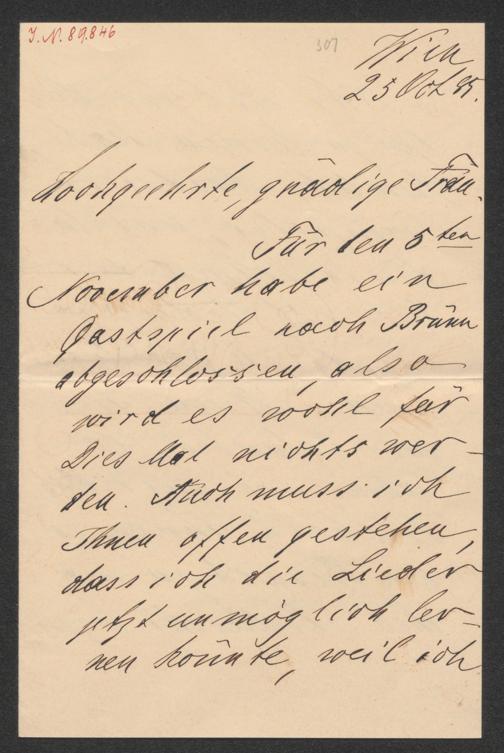 J. N. 89.846
307
Wien
25 Oct 95.
Hochgeehrte, gnädige Frau.
Für den 5ten
November habe ein
Gastspiel nach Brünn
abgeschlossen, also
wird es wohl für
Dies Mal nichts wer-
den. Auch muss ich
Ihnen offen gestehen,
dass ich die Lieder
jetzt unmöglich ler-
nen könnte, weil ich